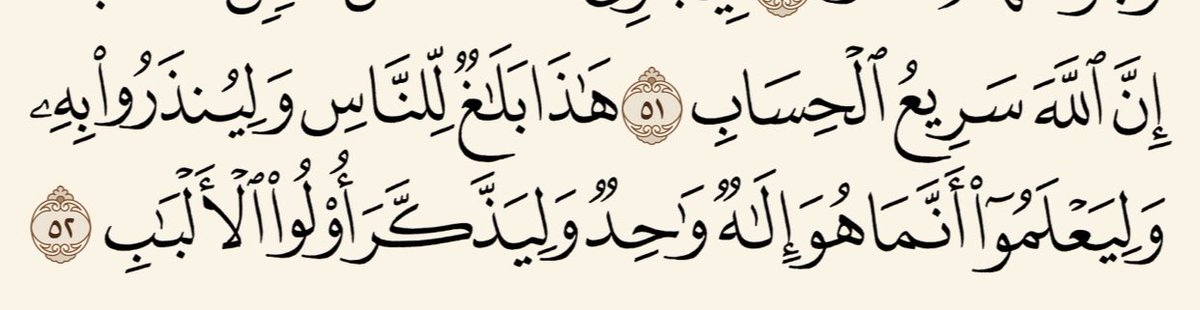 إِنَّ ٱللَّهَ سَرِيعُ ٱلۡحِسَابِ ٥١ هَٰذَا بَلَٰغٞ لِّلنَّاسِ وَلِيُنذَرُواْ بِهِۦ
وَلِيَعۡلَمُوٓاْ أَنَّمَا هُوَ إِلَٰهٞ وَٰحِدٞ وَلِيَذَّكَّرَ أُوْلُواْ ٱلۡأَلۡبَٰبِ ٥٢